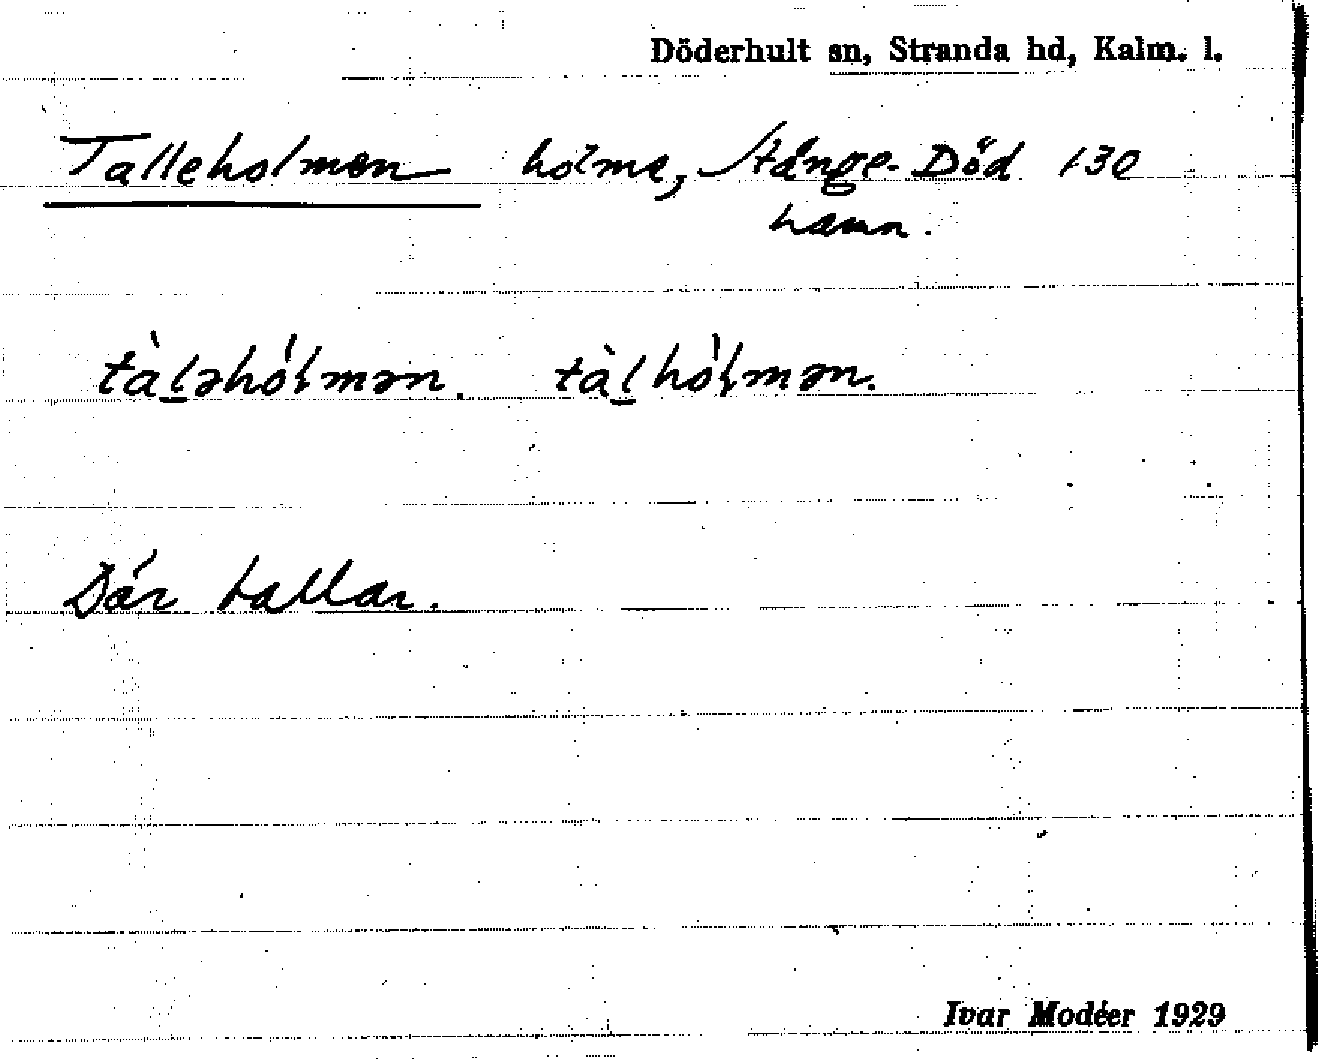 Döderhult sn, Stranda hd, Kalm. l.
Talleholmen holme, Stånge- Död 130
hamn.
tàl̲əhólmən. tàl̲hólmən.
Där tallar.
Ivar Modéer 1929